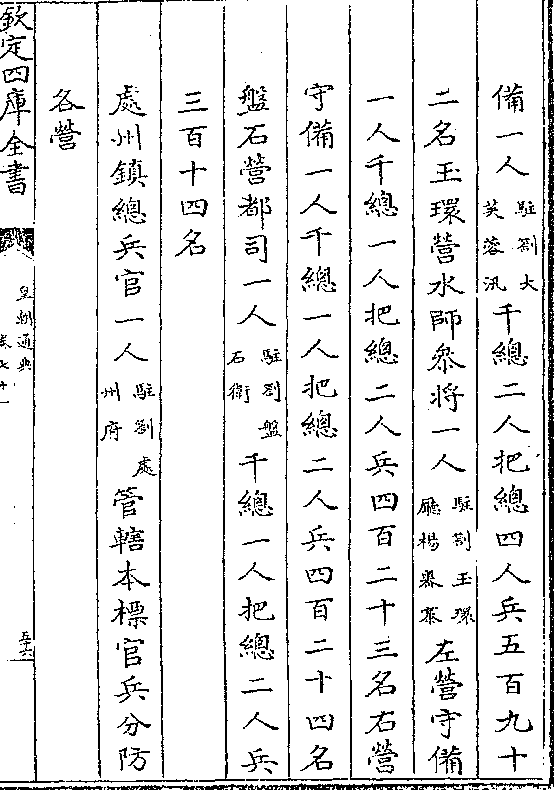 備一人駐劄大芙蓉汛千總二人把總四人兵五百九十
二名玉環營水師叅將一人駐劄玉環廳楊嶴寨左營守備
一人千總一人把總二人兵四百二十三名右營
守備一人千總一人把總二人兵四百二十四名
盤石營都司一人駐劄盤石衛千總一人把總二人兵
三百十四名
處州鎮總兵官一人駐劄處州府管轄本標官兵分防
各營
欽定四庫全書
皇朝通典
五十六